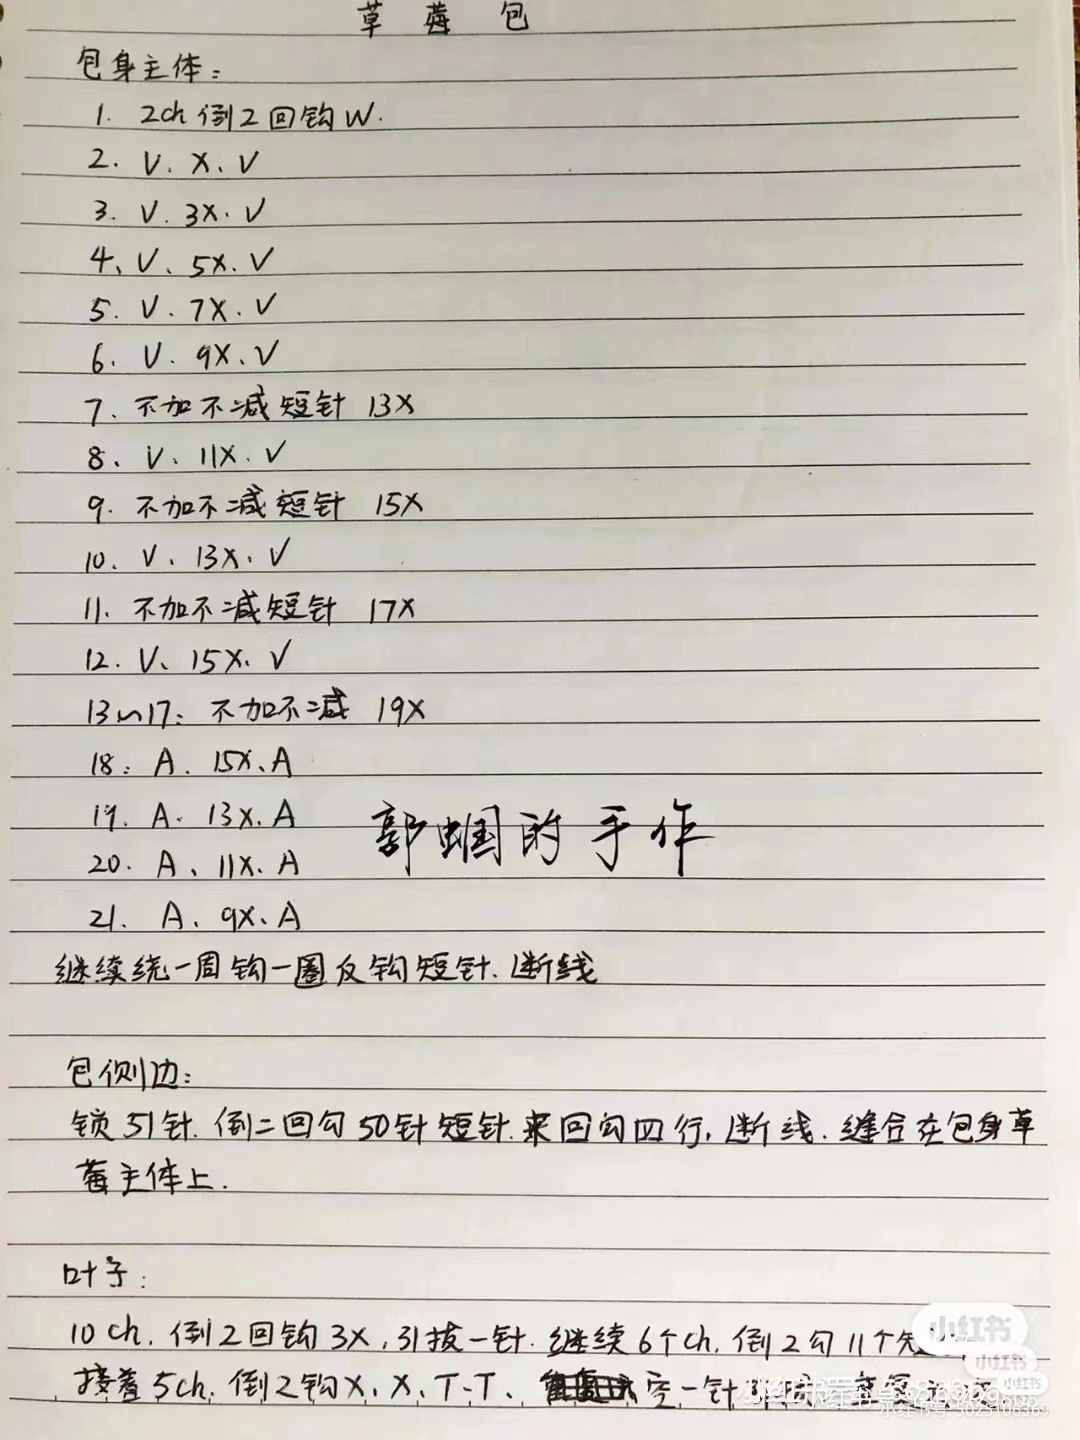 草莓包
包身主体:
1. 2ch 倒2回钩W.
2. V. X. V
3. V. 3X. V
4、V、5X. V
5. V. 7X. V
6. V. 9X. V
7. 不加不减短针 13X
8、V、11X. V
9. 不加不减短针 15X
10. V、13X. V
11. 不加不减短针 17X
12. V、15X. V
13~17: 不加不减 19X
18: A. 15X. A
19. A. 13X. A
郭蝈的手作
20. A、11X. A
21. A、9X. A
继续绕一周钩一圈反钩短针. 断线
包侧边:
锁51针. 倒二回勾50针短针. 来回勾四行, 断线. 缝合在包身草
莓主体上.
叶子:
10 ch. 倒2回钩3X, 引拔一针. 继续6个ch. 倒2勾11个
接着5ch. 倒2钩X、X、T-T、 空一针
小红书
小红书
小红书
小红书号